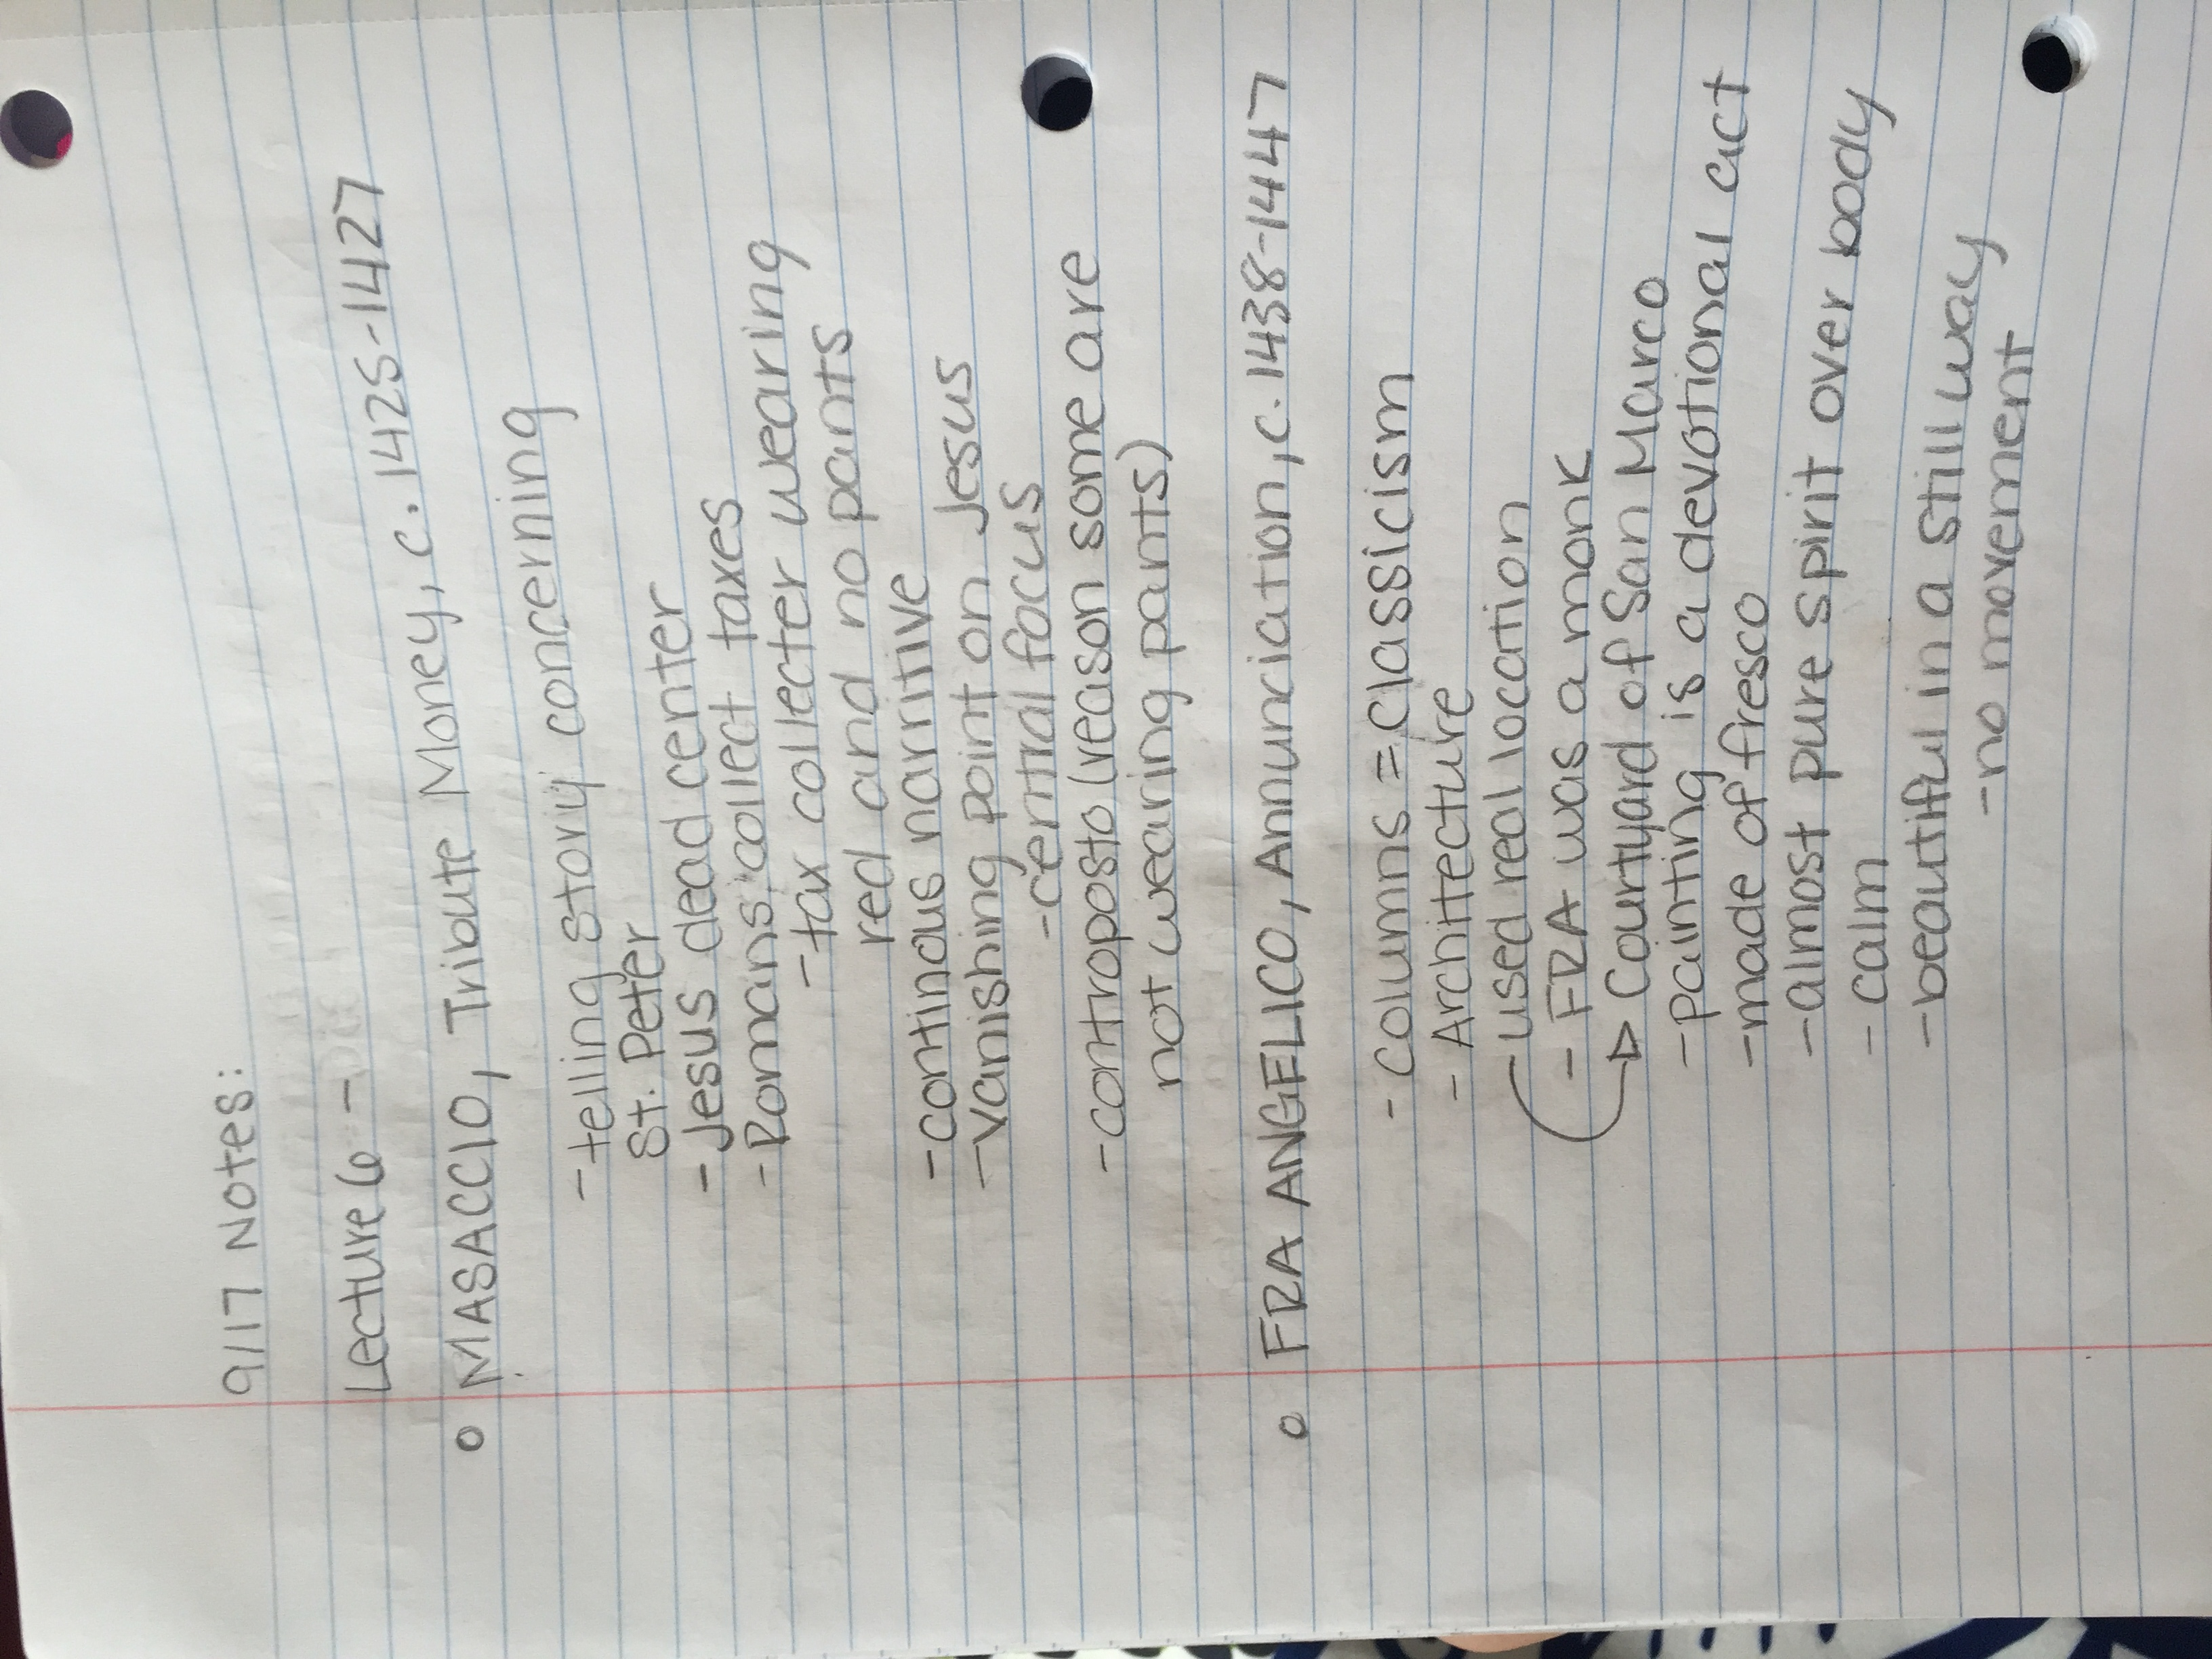 9/17 Notes:
Lecture 6 -
o MASACCIO, Tribute Money, c. 1425-1427
- telling story concerning
St. Peter
- Jesus dead center
- Romans collect taxes
- tax collecter wearing
red and no pants
- continous narritive
- vanishing point on Jesus
- central focus
- controposto (reason some are
not wearing pants)
o FRA ANGELICO, Annunciation, c. 1438-1447
- columns = classicism
- Architecture
- used real location
- FRA was a monk
→ Courtyard of San Marco
- painting is a devotional act
- made of fresco
- almost pure spirit over body
- calm
- beautiful in a still way
- no movement